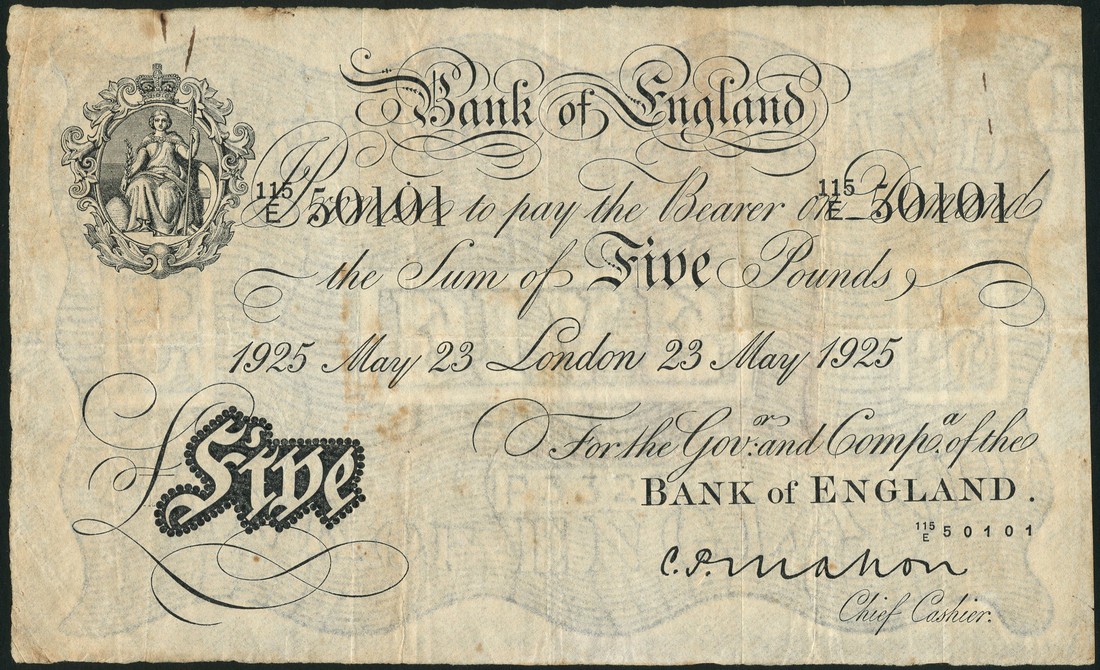 Bank of England
115/E 50101 I Promise to pay the Bearer on Demand 115/E 50101
the Sum of Five Pounds
1925 May 23 London 23 May 1925
For the Gov.r and Comp.a of the
BANK of ENGLAND.
£ Five
115/E 50101
C.P. Mahon
Chief Cashier.